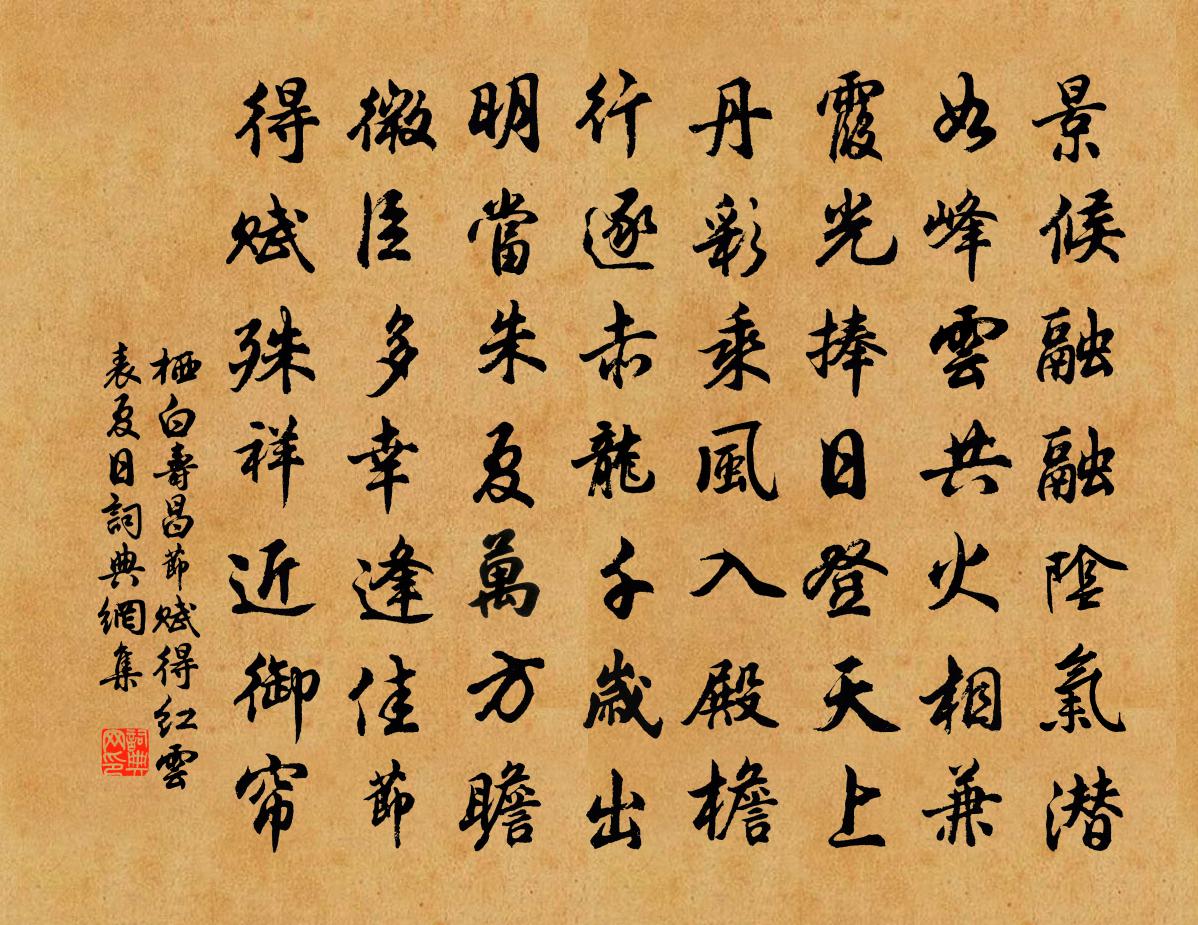 景候融融陰氣潛
如峰雲共火相兼
霞光捧日登天上
丹彩乘風入殿檐
行逐赤龍千歲出
明當朱夏萬方瞻
微臣多幸逢佳節
得賦殊祥近御帘
栖白壽昌節賦得紅雲
表夏日詞典網集
詞典網印